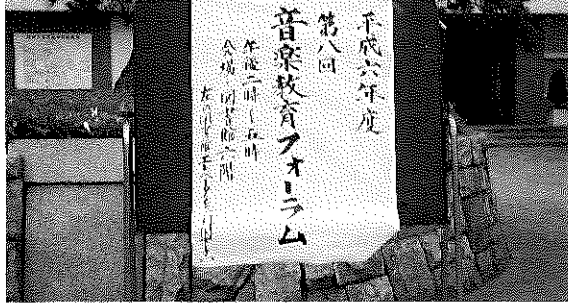 平成六年度
第八回
音楽教育フォーラム
午後二時〜五時
会場 図書館六階